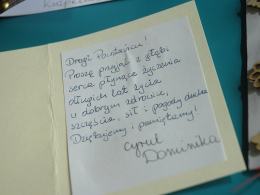 Drogi Powstańcu!
Proszę przyjąć z głębi
serca płynące życzenia
długich lat życia
w dobrym zdrowiu,
szczęścia, sił i pogody ducha
Dziękujemy i pamiętamy!
Cyryl
Dominika